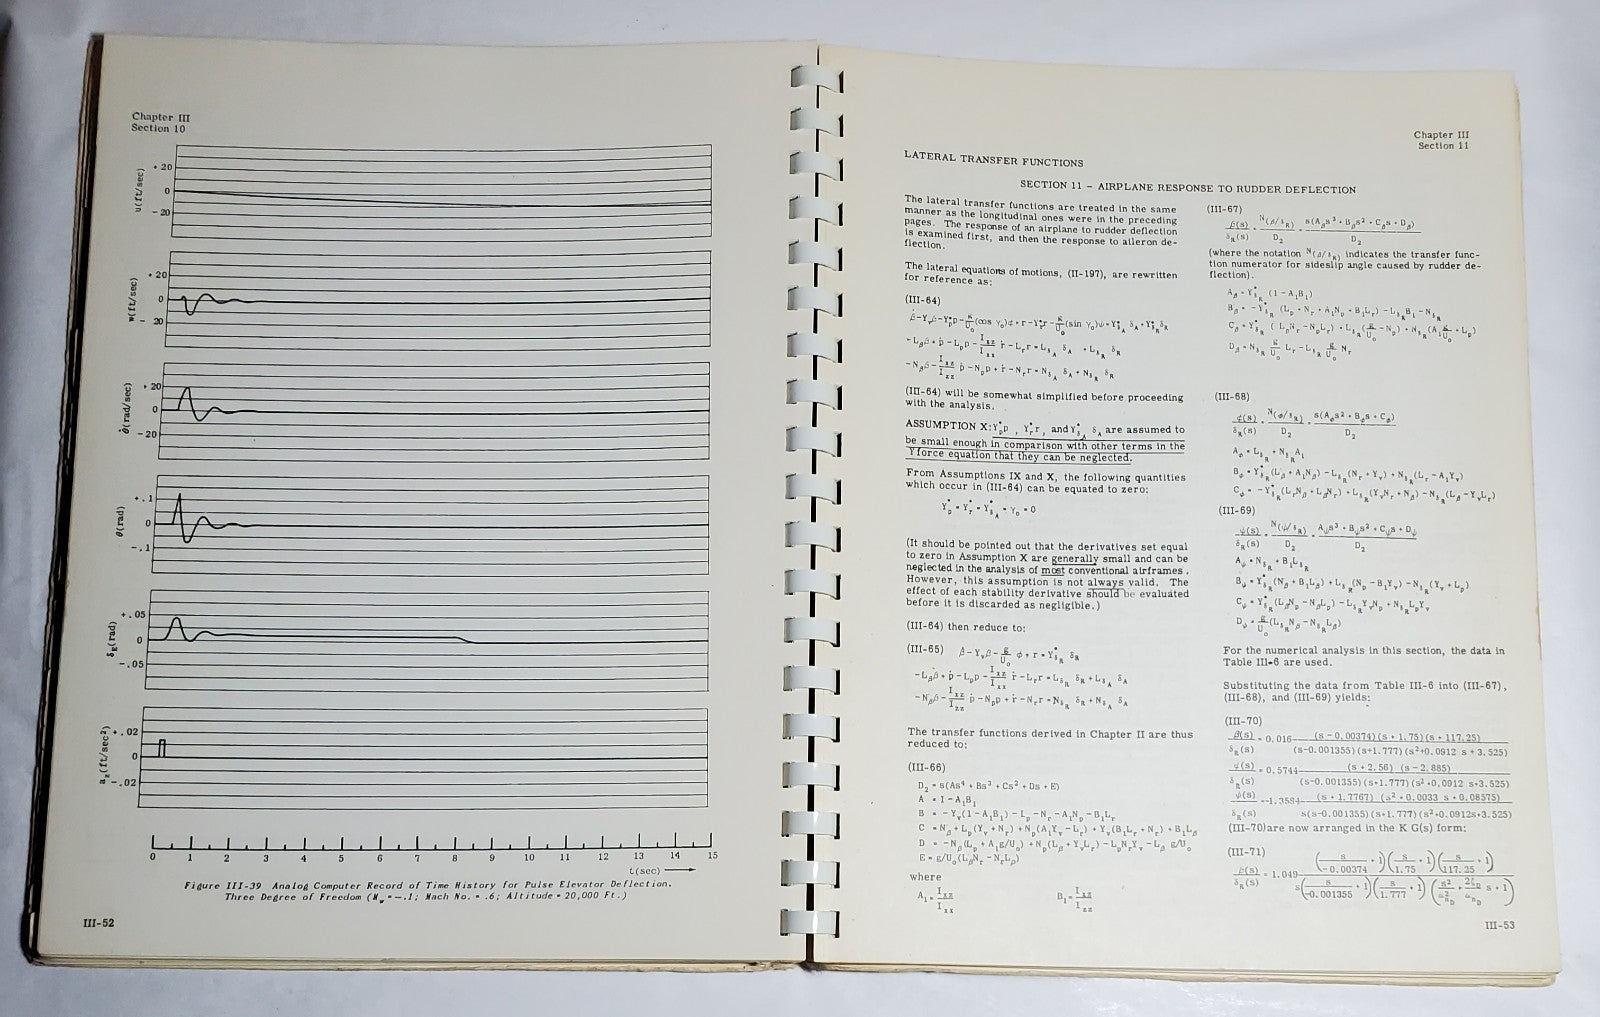 Chapter III
Section 10
u(ft/sec)
+ 20
0
- 20
w(ft/sec)
+ 20
0
- 20
θ̇(rad/sec)
+ 20
0
- 20
θ(rad)
+ .1
0
- .1
δ_E(rad)
+ .05
0
- .05
a_z(ft/sec²)
+ .02
0
- .02
0 1 2 3 4 5 6 7 8 9 10 11 12 13 14 15
t(sec)
Figure III-39 Analog Computer Record of Time History for Pulse Elevator Deflection.
Three Degree of Freedom (M_w = -.1; Mach No. = .6; Altitude = 20,000 Ft.)
III-52
Chapter III
Section 11
LATERAL TRANSFER FUNCTIONS
SECTION 11 - AIRPLANE RESPONSE TO RUDDER DEFLECTION
The lateral transfer functions are treated in the same
manner as the longitudinal ones were in the preceding
pages. The response of an airplane to rudder deflection
is examined first, and then the response to aileron de-
flection.
The lateral equations of motions, (II-197), are rewritten
for reference as:
(III-64)
(III-64) will be somewhat simplified before proceeding
with the analysis.
ASSUMPTION X: Y*_p p , Y*_r r, and Y*_δA δ_A are assumed to
be small enough in comparison with other terms in the
Y force equation that they can be neglected.
From Assumptions IX and X, the following quantities
which occur in (III-64) can be equated to zero:
Y*_p = Y*_r = Y*_δA = γ_0 = 0
(It should be pointed out that the derivatives set equal
to zero in Assumption X are generally small and can be
neglected in the analysis of most conventional airframes.
However, this assumption is not always valid. The
effect of each stability derivative should be evaluated
before it is discarded as negligible.)
(III-64) then reduce to:
(III-65) β̇ - Y_v β - g/U_o φ + r = Y*_δR δ_R
-L_β β + ṗ - L_p p - I_xz/I_xx ṙ - L_r r = L_δR δ_R + L_δA δ_A
-N_β β - I_xz/I_zz ṗ - N_p p + ṙ - N_r r = N_δR δ_R + N_δA δ_A
The transfer functions derived in Chapter II are thus
reduced to:
(III-66)
D_2 = s(As⁴ + Bs³ + Cs² + Ds + E)
A = 1 - A_1B_1
B = -Y_v(1 - A_1B_1) - L_p - N_r - A_1N_p - B_1L_r
C = N_β + L_p(Y_v + N_r) + N_p(A_1Y_v - L_r) + Y_v(B_1L_r + N_r) + B_1L_β
D = -N_β(L_p + A_1g/U_o) + N_p(L_β + Y_vL_r) - L_pN_rY_v - L_β g/U_o
E = g/U_o(L_βN_r - N_rL_β)
where
A_1 = I_xz/I_xx B_1 = I_xz/I_zz
(III-67)
β(s)/δ_R(s) = N(β/δ_R)/D_2 = s(A_βs³ + B_βs² + C_βs + D_β)/D_2
(where the notation N(β/δ_R) indicates the transfer func-
tion numerator for sideslip angle caused by rudder de-
flection).
A_β = Y*_δR (1 - A_1B_1)
B_β = -Y*_δR (L_p + N_r + A_1N_p + B_1L_r) - L_δR B_1 - N_δR
C_β = Y*_δR (L_pN_r - N_pL_r) + L_δR(g/U_o - N_p) + N_δR(A_1 g/U_o + L_p)
D_β = N_δR g/U_o L_r - L_δR g/U_o N_r
(III-68)
φ(s)/δ_R(s) = N(φ/δ_R)/D_2 = s(A_φs² + B_φs + C_φ)/D_2
A_φ = L_δR + N_δR A_1
B_φ = Y*_δR(L_β + A_1N_β) - L_δR(N_r + Y_v) + N_δR(L_r - A_1Y_v)
C_φ = -Y*_δR(L_rN_β + L_βN_r) + L_δR(Y_vN_r + N_β) - N_δR(L_β - Y_vL_r)
(III-69)
ψ(s)/δ_R(s) = N(ψ/δ_R)/D_2 = A_ψs³ + B_ψs² + C_ψs + D_ψ/D_2
A_ψ = N_δR + B_1L_δR
B_ψ = Y*_δR(N_β + B_1L_β) + L_δR(N_p - B_1Y_v) - N_δR(Y_v + L_p)
C_ψ = Y*_δR(L_βN_p - N_βL_p) - L_δR Y_vN_p + N_δR L_pY_v
D_ψ = g/U_o(L_δR N_β - N_δR L_β)
For the numerical analysis in this section, the data in
Table III-6 are used.
Substituting the data from Table III-6 into (III-67),
(III-68), and (III-69) yields:
(III-70)
β(s)/δ_R(s) = 0.016 (s - 0.00374)(s + 1.75)(s + 117.25)/(s-0.001355)(s+1.777)(s²+0.0912 s + 3.525)
φ(s)/δ_R(s) = 0.5744 (s + 2.56) (s - 2.885)/(s-0.001355)(s+1.777)(s²+0.0912 s+3.525)
ψ(s)/δ_R(s) = -1.3584 (s + 1.7767) (s² + 0.0033 s + 0.08575)/s(s-0.001355)(s+1.777)(s²+0.0912s+3.525)
(III-70) are now arranged in the K G(s) form:
(III-71)
β(s)/δ_R(s) = 1.049 (s/-0.00374 + 1)(s/1.75 + 1)(s/117.25 + 1)/s(s/-0.001355 + 1)(s/1.777 + 1)(s²/ω²_nD + 2ζ_D/ω_nD s + 1)
III-53